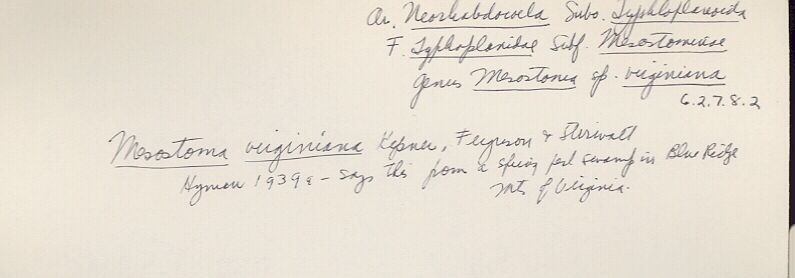 Or. Neorhabdocoela Subo. Typhloplanoida
F. Typhoplanidae Subf. Mesostominae
Genus Mesostoma sp. virginiana
6.2.7.8.2
Mesostoma virginiana Kepner, Ferguson & Stirewalt
Hyman 1939a - says this from a spring fed swamp in Blue Ridge
Mts of Virginia.